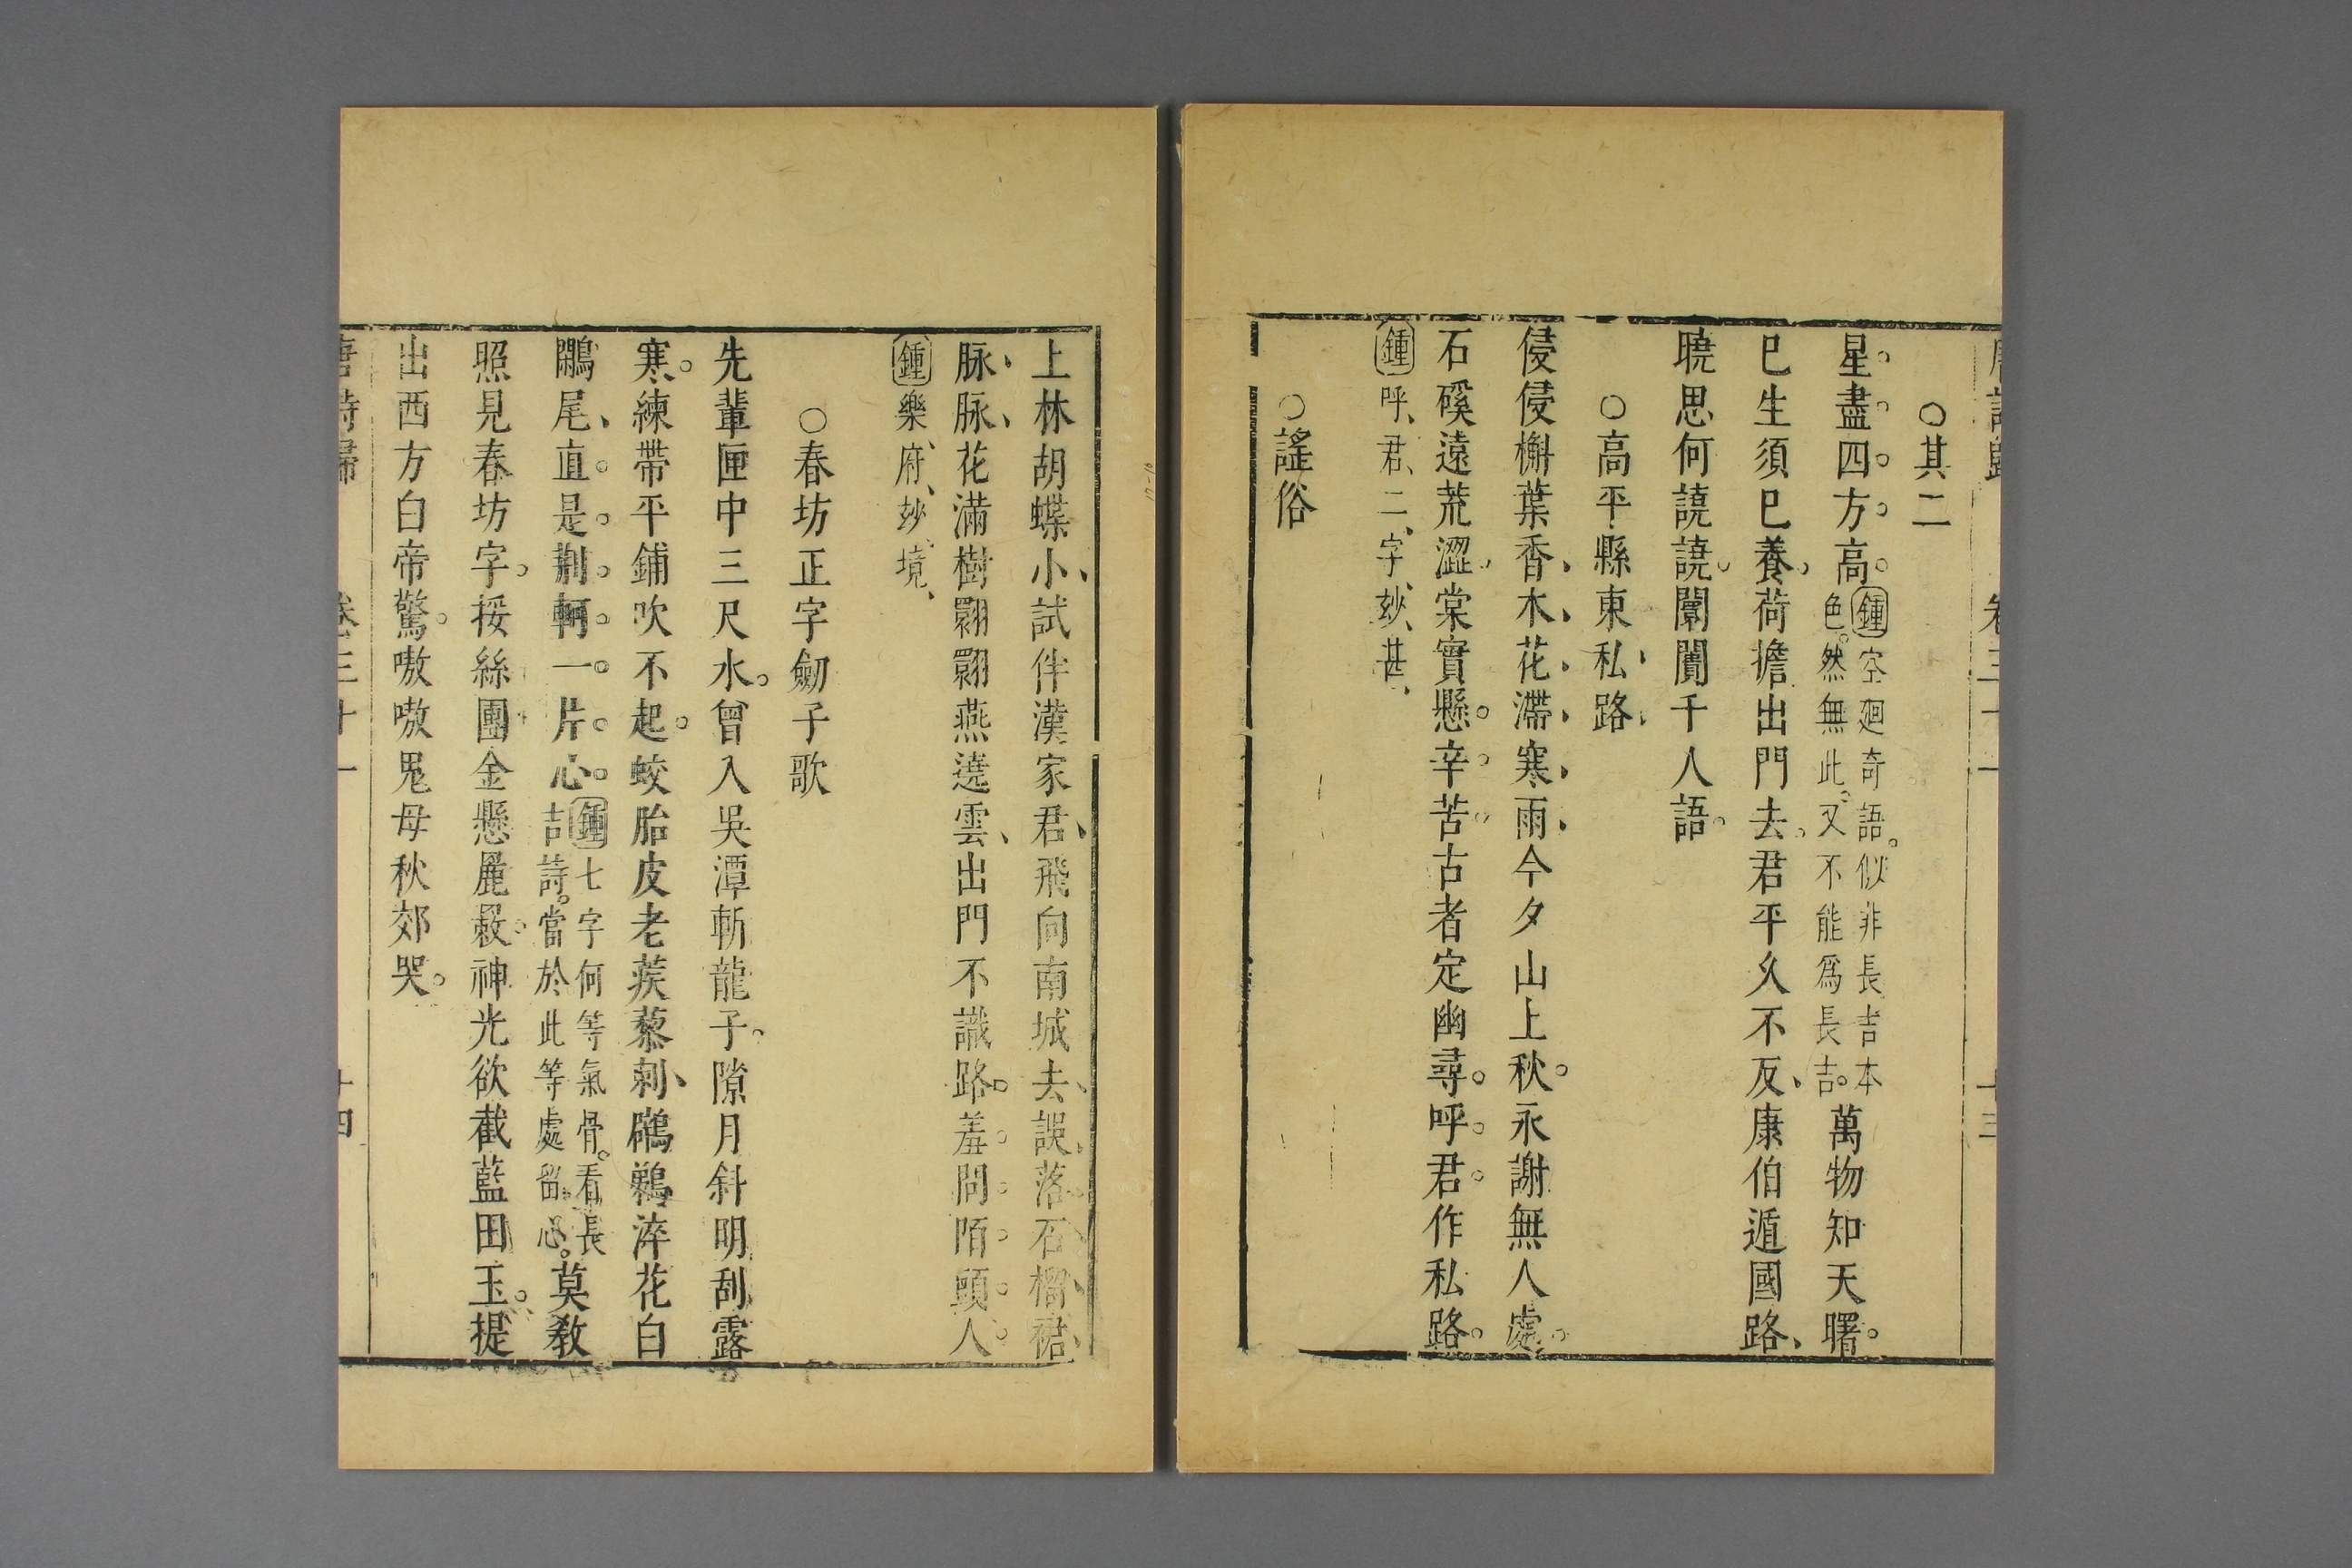 唐詩歸 卷三十一 十三
○其二
星盡四方高鍾空廻奇語似非長吉本色然無此又不能爲長吉萬物知天曙
巳生須巳養荷擔出門去君平久不反康伯遁國路
曉思何譊譊闤闠千人語
○高平縣東私路
侵侵槲葉香木花滯寒雨今夕山上秋永謝無人處
石磎遠荒澀棠實懸辛苦古者定幽尋呼君作私路
鍾呼君二字玅甚
○謠俗
上林胡蝶小試伴漢家君飛向南城去誤落石榴裙
脉脉花滿樹翾翾燕遶雲出門不識路羞問陌頭人
鍾樂府玅境
○春坊正字劒子歌
先輩匣中三尺水曾入吳潭斬龍子隙月斜明刮露
寒練帶平鋪吹不起蛟胎皮老蒺藜刺鸊鵜淬花白
鷳尾直是荆軻一片心鍾七字何等氣骨看長吉詩當於此等處留心莫教
照見春坊字挼絲團金懸麗㲚神光欲截藍田玉提
出西方白帝驚嗷嗷鬼母秋郊哭
唐詩歸 卷三十一 十四